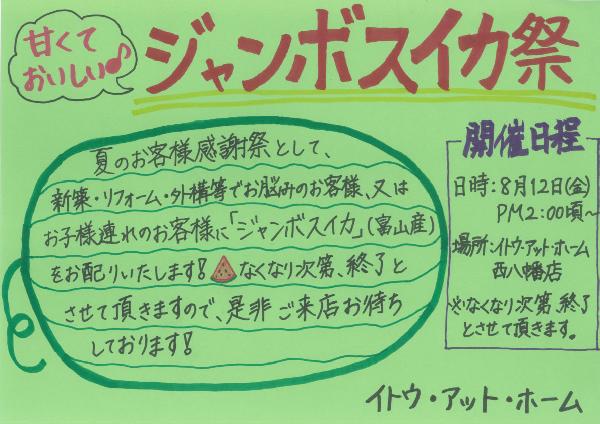 甘くて
おいしい♪
ジャンボスイカ祭
夏のお客様感謝祭として、
新築・リフォーム・外構等でお悩みのお客様、又は
お子様連れのお客様に「ジャンボスイカ」(富山産)
をお配りいたします!なくなり次第、終了と
させて頂きますので、是非ご来店お待ち
しております!
開催日程
日時:8月12日(金)
PM2:00頃~
場所:イトウ・アット・ホーム
西八幡店
※なくなり次第、終了
とさせて頂きます。
イトウ・アット・ホーム